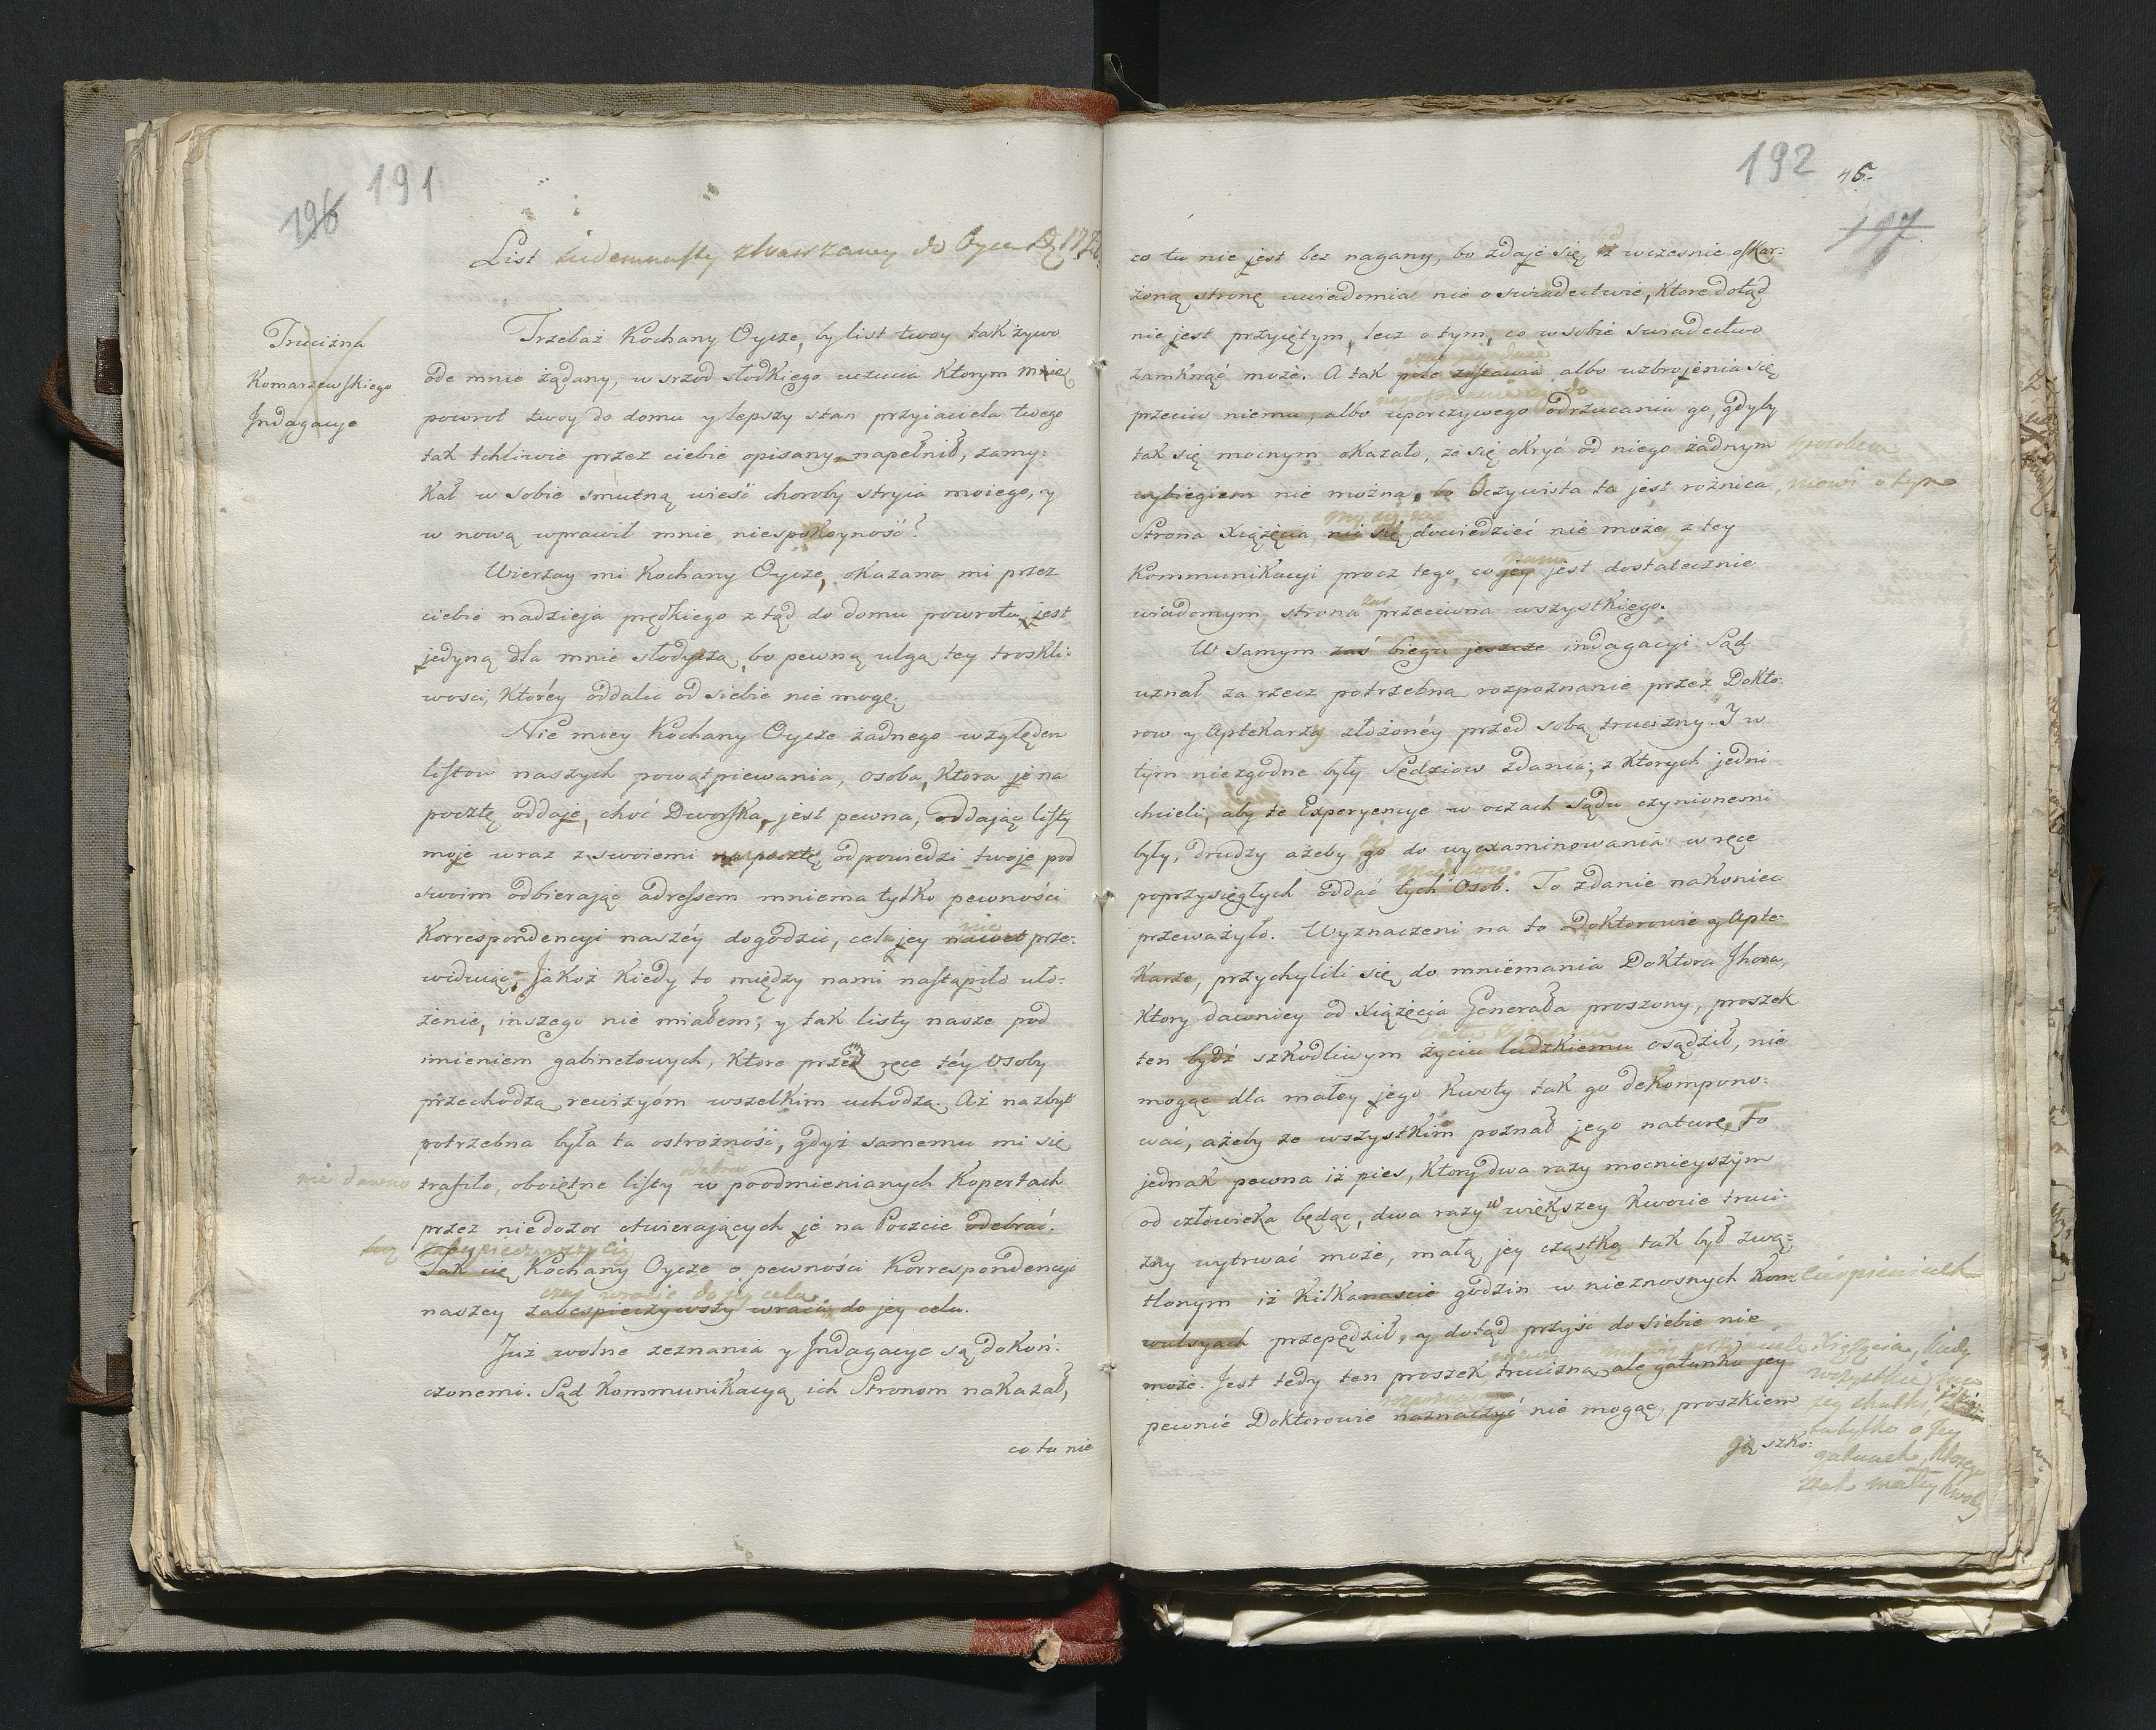 196 191
List siedemnasty z Warszawy do Oyca D.
Trucizna
Komarzewskiego
Indagacye
Trzebaż Kochany Oycze, by list twoy tak żywo
ode mnie żądany, w srzod słodkiego uczucia ktorym mnię
powrot twoy do domu y lepszy stan przyiaciela twego
tak tchliwie przez ciebie opisany napełnił, zamy:
kał w sobie smutną wieść choroby stryia moiego, y
w nową wprawił mnie niespokoyność?
Wierzay mi Kochany Oycze, okazana mi przez
ciebie nadzieja prędkiego z tąd do domu powrotu, jest
jedyną dla mnie słodyczą, bo pewną ulgą tey troskli:
wosci, ktorey oddalić od siebie nie mogę.
Nie miey Kochany Oycze żadnego względem
listow naszych powątpiewania, osoba, ktora je na
pocztę oddaje, choć Dworska, jest pewna, oddając listy
moje wraz z swoiemi na pocztę odpowiedzi twoje pod
swoim odbierając adressem mniema tylko pewności
nie
Korrespondencyi naszéy dogodzić, celu jey nawet prze:
widując; Jakoż kiedy to między nami nastąpiło uło:
żenie, inszego nie miałem; y tak listy nasze pod
imieniem gabinetowych, ktore przez ręce téy osoby
przechodzą rewizyóm wszelkim uchodzą. Aż nazbyt
potrzebna była ta ostrożność, gdyż samemu mi się
nie dawno trafiło, oboiętne listy w poodmienianych Kopertach
przez niedozor otwierających je na Poczcie odebrać.
zabespieczywszy cię
Tak cię Kochany Oycze o pewności Korrespondencyi
wracie do jey celu
naszey zabespieczywszy wracam do jey celu.
Już wolne zeznania y Indagacye są dokoń:
czonemi. Sąd Kommunikacyą ich Stronom nakazał,
co tu nie
192 45.
197
co tu nie jest bez nagany, bo zdaje się iż wczesnie oskar:
żoną stronę uwiadomia nie o swiadectwie, ktore dotąd
nie jest przyiętym, lecz o tym, co w sobie swiadectwo
zamknąć może. A tak pole zostawia albo uzbrojenia się
do
przeciw niemu, albo uporczywego odrzucania go, gdyby
tak się mocnym okazało, że się okryć od niego żadnym sposobem
wybiegiem nie można, bo Oczywista ta jest rożnica, mowi o tym
Strona Xiążęcia nic się dowiedzieć nie może z tey
Kommunikacyi procz tego, co jey jest dostatecznie
wiadomym, strona zas przeciwna wszystkiego.
W samym zaś biegu jeszcze indagacyi Sąd
uznał za rzecz potrzebną rozpoznanie przez Dokto:
row y Aptekarzy złożonéy przed sobą trucizny. I w
tym niezgodne były Sędziow zdania; z ktorych jedni
chcieli, aby te Experyencye w oczach sądu czynionemi
były, drudzy ażeby go do wyexaminowania w ręce
Medykow.
poprzysięgłych oddać tych Osob. To zdanie nakoniec
przeważyło. Wyznaczeni na to Doktorowie y Apte:
karze, przychylili się do mniemania Doktora Jhona,
ktory dawniey od Xiążęcia Generała proszony, proszek
ten bydź szkodliwym życiu ludzkiemu osądził, nie
mogąc dla małey jego kwoty tak go dekompono:
wać, ażeby ze wszystkim poznał jego naturę, To
jednak pewna iż pies, ktory dwa razy mocnieyszym
od człowieka będąc, dwa razy w większey kwocie truci:
zny wytrwać może, małą jey cząstką tak był zwą:
tlonym iż kilkanascie godzin w nieznosnych kon: cierpieniach
wulsyach przepędził, y dotąd przyść do siebie nie
może. Jest tedy ten proszek trucizną ale gatunku jey
pewnie Doktorowie naznaczyć nie mogąc, proszkiem
ją szko:
mowią przyiaciele Xiążęcia, kiedy
wszystkie ma
jey skutki,
tu tylko o Jey
gatunek, ktorego
małey kwoty